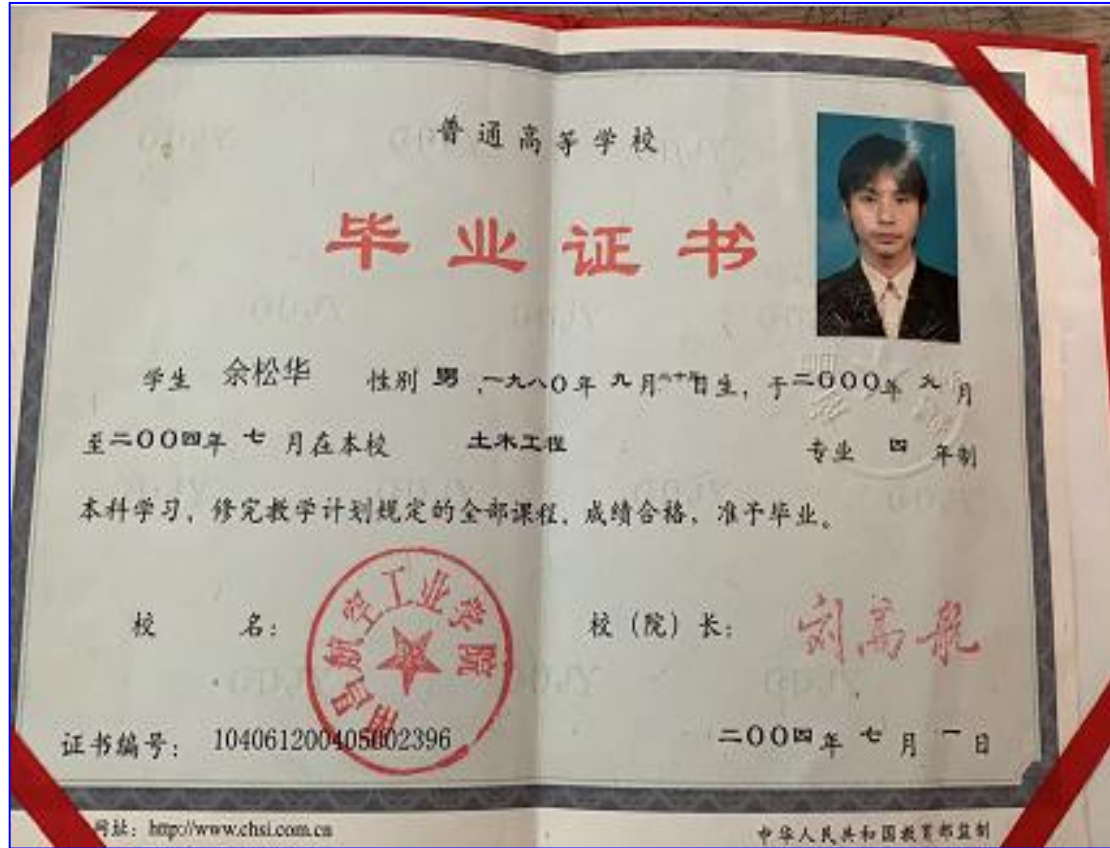 普通高等学校
毕业证书
学生 余松华 性别 男 ,一九八〇年 九月二十日生, 于二〇〇〇年 九 月
至二〇〇四年 七 月在本校 土木工程 专业 四 年制
本科学习, 修完教学计划规定的全部课程, 成绩合格, 准予毕业。
校 名: 南昌航空工业学院 校(院)长: 刘高航
证书编号: 104061200405002396 二〇〇四年 七 月 一 日
网址: http://www.chsi.com.cn 中华人民共和国教育部监制